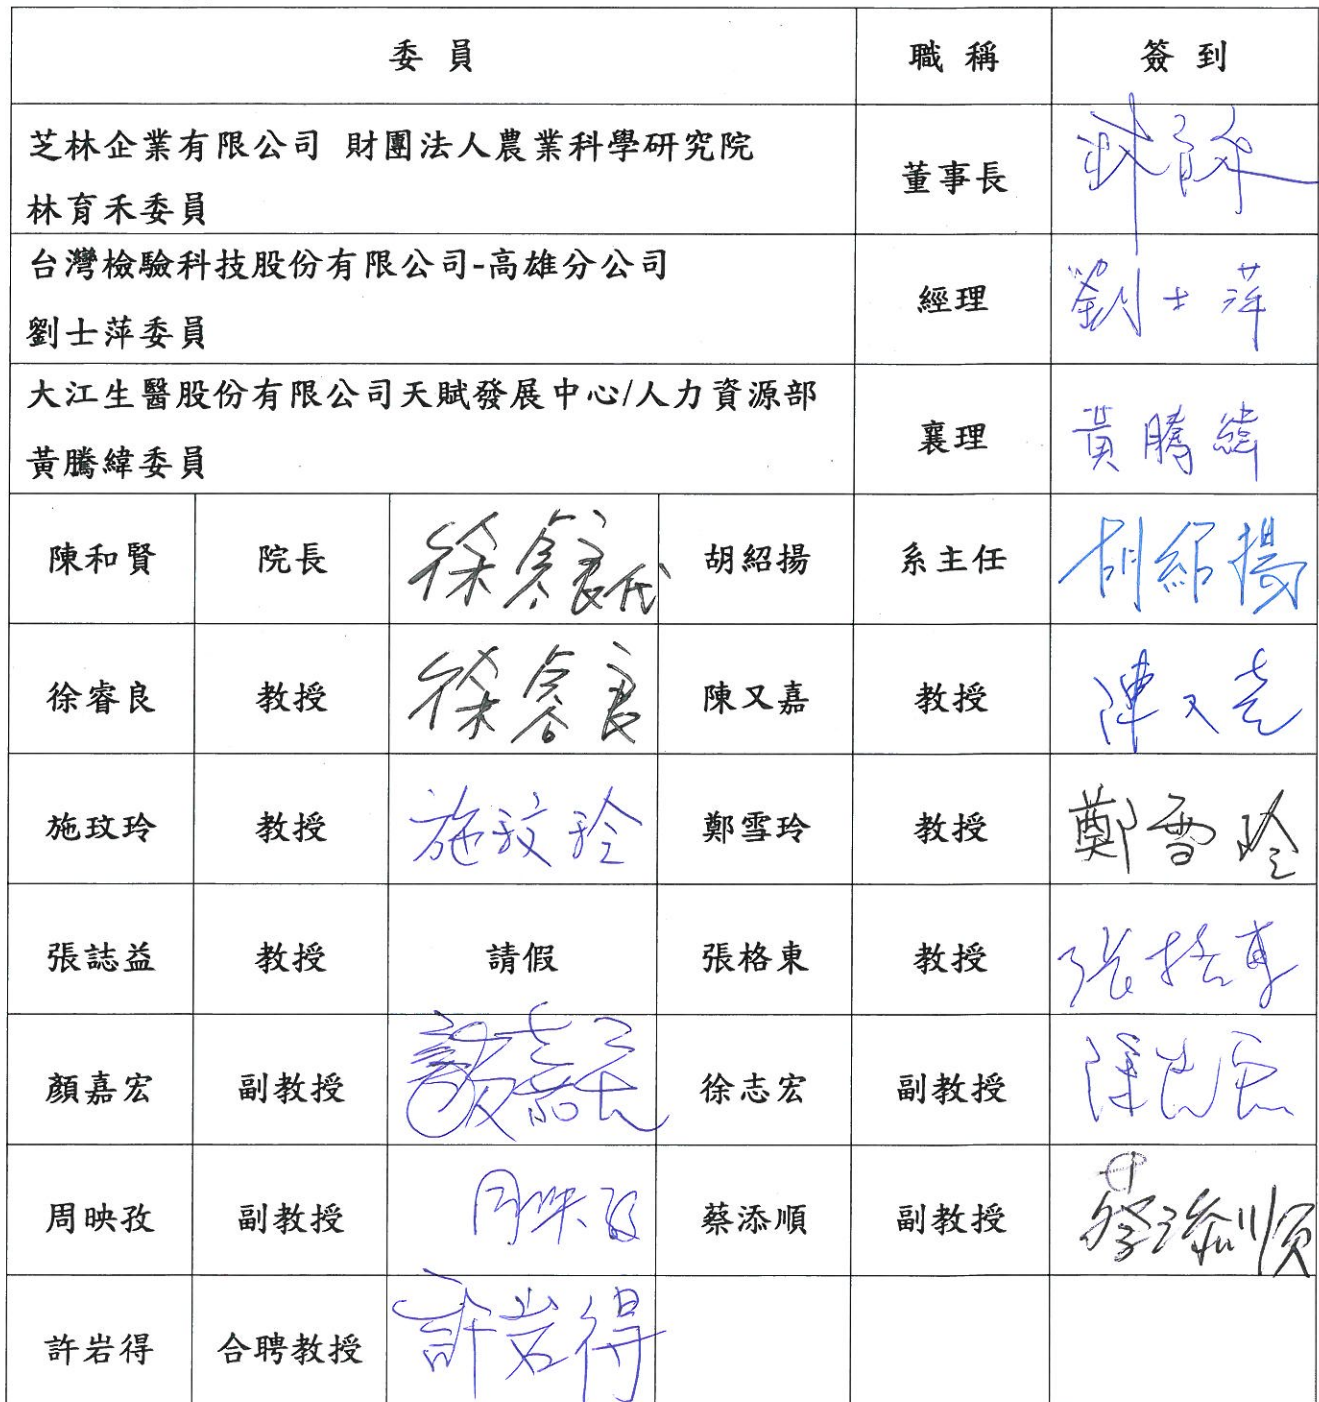 委員 職稱 簽到
芝林企業有限公司 財團法人農業科學研究院
林育禾委員 董事長 林育禾
台灣檢驗科技股份有限公司-高雄分公司
劉士萍委員 經理 劉士萍
大江生醫股份有限公司天賦發展中心/人力資源部
黃騰緯委員 襄理 黃騰緯
陳和賢 院長 徐睿良代 胡紹揚 系主任 胡紹揚
徐睿良 教授 徐睿良 陳又嘉 教授 陳又嘉
施玟玲 教授 施玟玲 鄭雪玲 教授 鄭雪玲
張誌益 教授 請假 張格東 教授 張格東
顏嘉宏 副教授 顏嘉宏 徐志宏 副教授 徐志宏
周映孜 副教授 周映孜 蔡添順 副教授 蔡添順
許岩得 合聘教授 許岩得